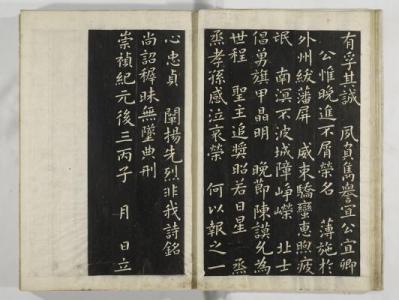 有孚其誠 夙負雋譽宜公宜卿
公惟晩進不屑榮名 薄施於
外州紱藩屏 威東驕蠻惠煦疲
氓 南溟不波城障崢嶸 北士
倡勇旗甲晶明 晩節陳謨允為
世程 聖王追奬昭若日星 烝
烝孝孫感泣哀榮 何以報之一
心忠貞 闡揚先烈非我詩銘
尚詔穉昧無墜典刑
崇禎紀元後三丙子 月 日立